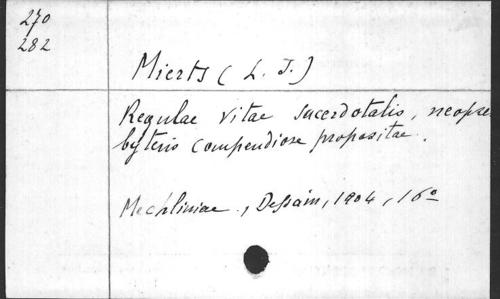 270
282
Mierts (L. J.)
Regulae vitae sacerdotalis, neopres
byteris compendiose propositae.
Mechliniae, Dessain, 1904, 16o